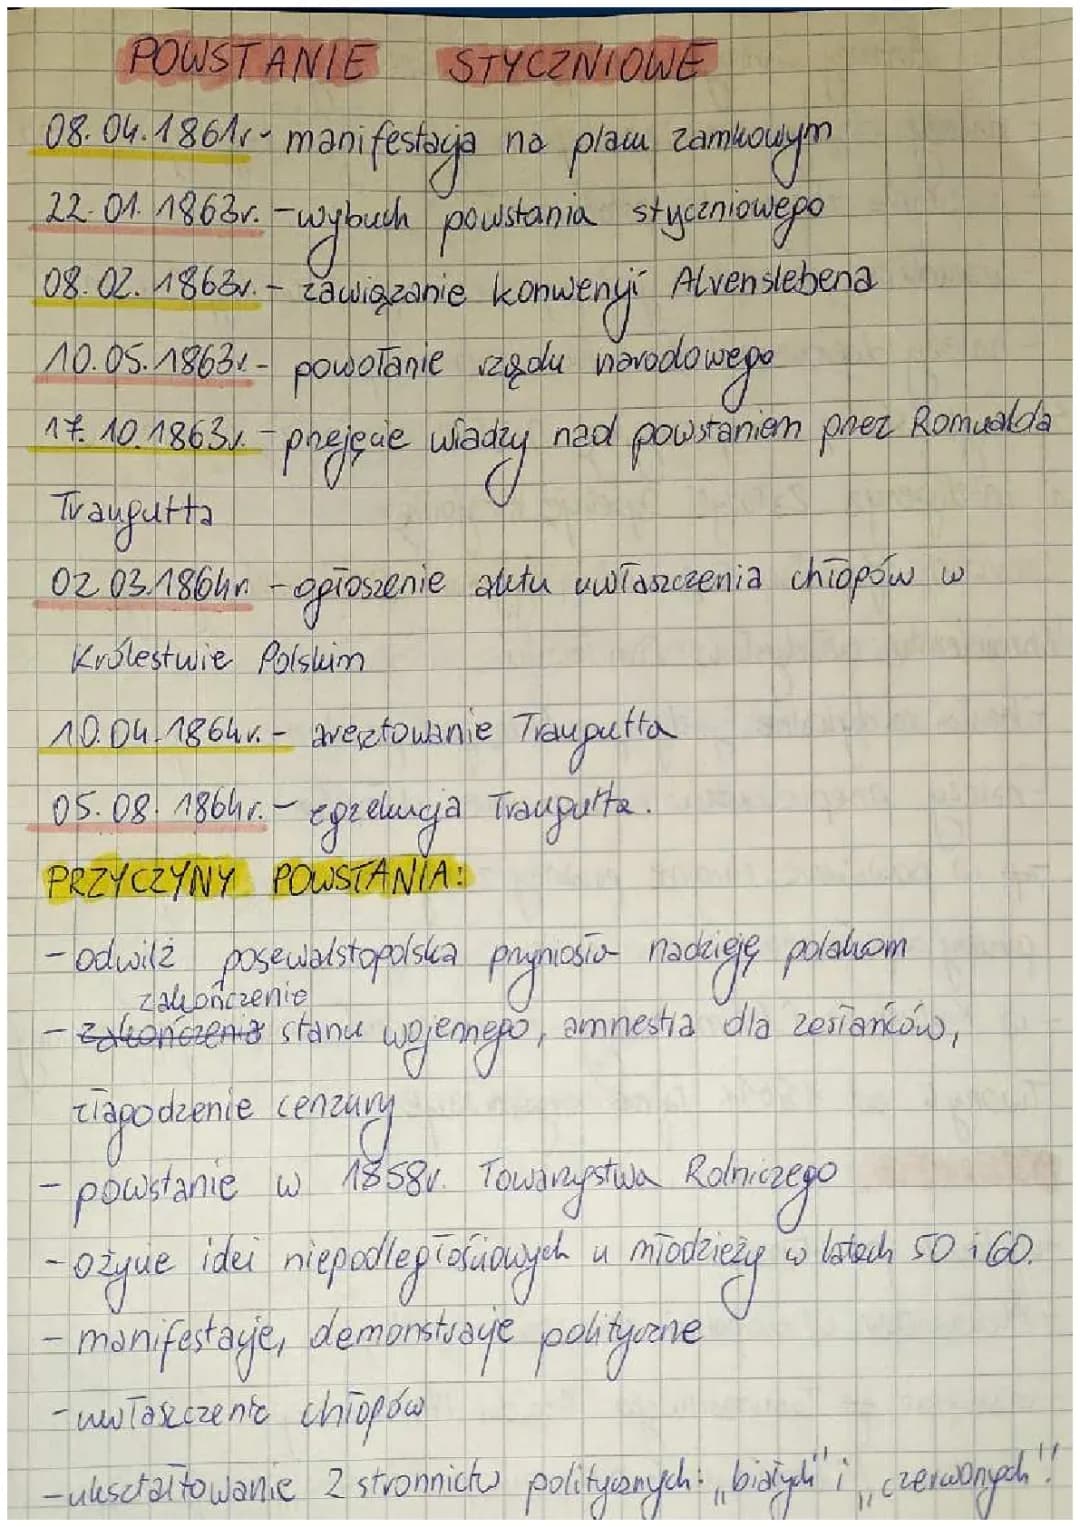 POWSTANIE STYCZNIOWE
08.04.1861r- manifestacja na placu zamkowym
22.01.1863r. - wybuch powstania styczniowego
08.02.1863r. - zawiązanie konwenyji Alvenslebena
10.05.1863r. - powołanie rządu narodowego
17.10.1863r. - przejęcie władzy nad powstaniem przez Romualda
Traugutta
02.03.1864r. - ogłoszenie aktu uwłaszczenia chłopów w
Królestwie Polskim
10.04.1864r. - aresztowanie Traugutta
05.08.1864r. - egzekucja Traugutta.
PRZYCZYNY POWSTANIA:
- odwilż posewalstopolska przyniosła nadzieję polakom
zakończenie
- zakończenia stanu wojennego, amnestia dla zesłańców,
złagodzenie cenzury
- powstanie w 1858r. Towarzystwa Rolniczego
- ożycie idei niepodległościowych u młodzieży w latach 50 i 60.
- manifestacje, demonstracje polityczne
- uwłaszczenie chłopów
- ukształtowanie 2 stronnictw politycznych: „białych" i „czerwonych"!